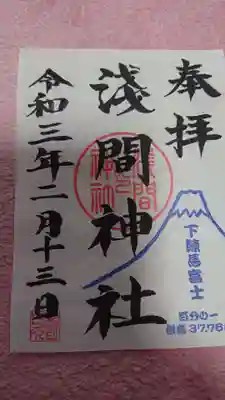 奉拝
淺間神社
令和三年二月十三日
下練馬富士
百分の一
標高37.76